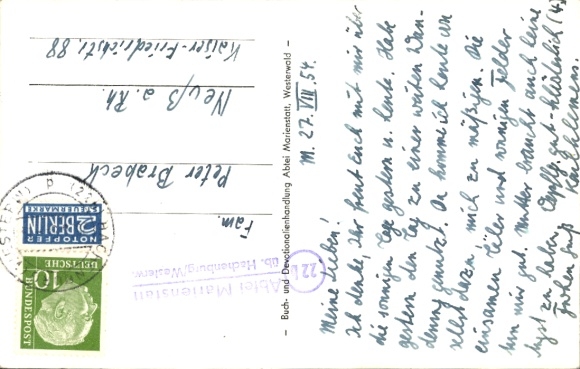 M. 27. VIII. 54.
Meine Lieben!
Ich denke, Ihr freut Euch mit mir über
die sonnigen Tage gestern u. heute. Habe
gestern den Tag zu einer weiten Wan-
derung genutzt. Da komme ich heute von
selbst dazu mich zu mäßigen. Die
einsamen Täler und sonnigen Felder
tun mir gut. Mutter braucht auch keine
Angst zu haben. Verpfleg. gut - klösterlich (4.)
Frohen Gruß
Karlklemens.
Buch- und Devotionalienhandlung Abtei Marienstatt, Westerwald
Fam.
Peter Brabeck
Neuß a. Rh.
Kaiser-Friedrichstr. 88
Abtei Marienstatt
üb. Hachenburg/Westerw.
22
NOTOPFER
2 BERLIN
STEUERMARKE
DEUTSCHE
BUNDESPOST
10